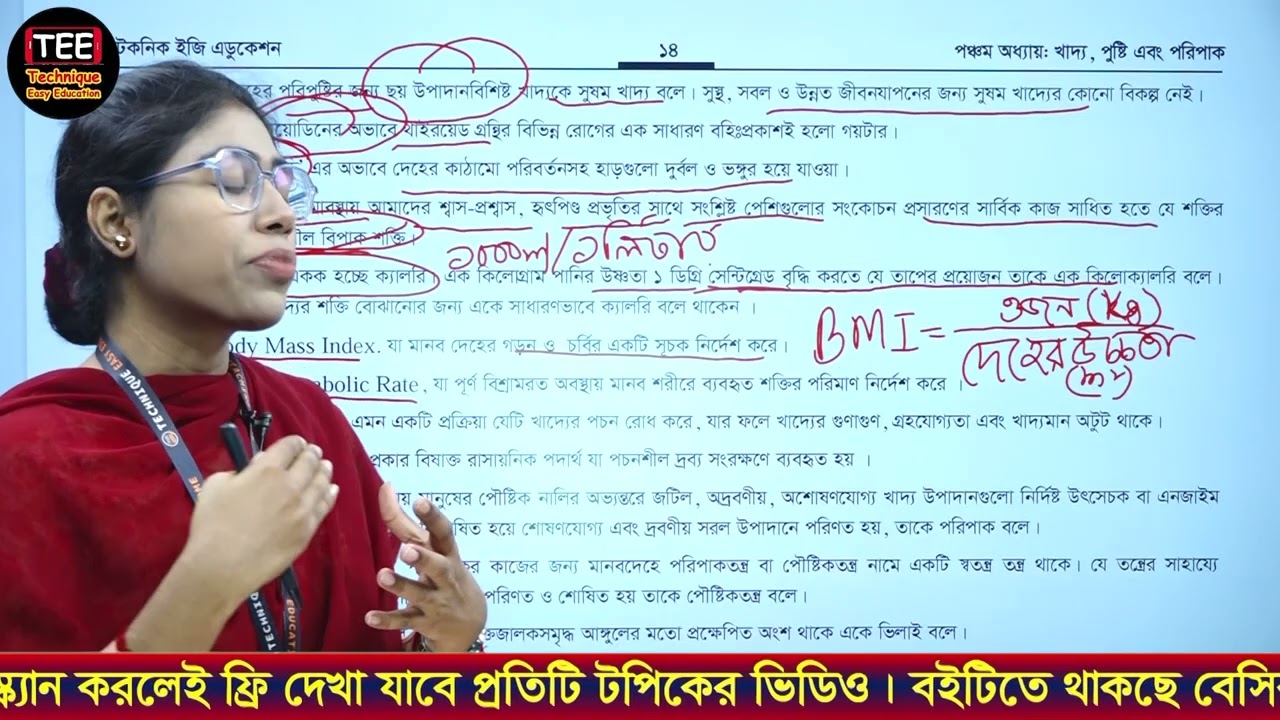 TEE
Technique
Easy Education
টেকনিক ইজি এডুকেশন
১৪
পঞ্চম অধ্যায়: খাদ্য, পুষ্টি এবং পরিপাক
পরিপুষ্টির জন্য ছয় উপাদানবিশিষ্ট খাদ্যকে সুষম খাদ্য বলে। সুস্থ, সবল ও উন্নত জীবনযাপনের জন্য সুষম খাদ্যের কোনো বিকল্প নেই।
য়োডিনের অভাবে থাইরয়েড গ্রন্থির বিভিন্ন রোগের এক সাধারণ বহিঃপ্রকাশই হলো গয়টার।
এর অভাবে দেহের কাঠামো পরিবর্তনসহ হাড়গুলো দুর্বল ও ভঙ্গুর হয়ে যাওয়া।
আমাদের শ্বাস-প্রশ্বাস, হৃৎপিণ্ড প্রভৃতির সাথে সংশ্লিষ্ট পেশিগুলোর সংকোচন প্রসারণের সার্বিক কাজ সাধিত হতে যে শক্তির
বিপাক শক্তি।
একক হচ্ছে ক্যালরি। এক কিলোগ্রাম পানির উষ্ণতা ১ ডিগ্রি সেন্টিগ্রেড বৃদ্ধি করতে যে তাপের প্রয়োজন তাকে এক কিলোক্যালরি বলে।
শক্তি বোঝানোর জন্য একে সাধারণভাবে ক্যালরি বলে থাকেন ।
BMI = ওজন (Kg)
দেহের উচ্চতা
(m²)
ody Mass Index. যা মানব দেহের গড়ন ও চর্বির একটি সূচক নির্দেশ করে।
abolic Rate, যা পূর্ণ বিশ্রামরত অবস্থায় মানব শরীরে ব্যবহৃত শক্তির পরিমাণ নির্দেশ করে ।
এমন একটি প্রক্রিয়া যেটি খাদ্যের পচন রোধ করে, যার ফলে খাদ্যের গুণাগুণ, গ্রহযোগ্যতা এবং খাদ্যমান অটুট থাকে।
প্রকার বিষাক্ত রাসায়নিক পদার্থ যা পচনশীল দ্রব্য সংরক্ষণে ব্যবহৃত হয় ।
মানুষের পৌষ্টিক নালির অভ্যন্তরে জটিল, অদ্রবণীয়, অশোষণযোগ্য খাদ্য উপাদানগুলো নির্দিষ্ট উৎসেচক বা এনজাইম
হয়ে শোষণযোগ্য এবং দ্রবণীয় সরল উপাদানে পরিণত হয়, তাকে পরিপাক বলে।
কাজের জন্য মানবদেহে পরিপাকতন্ত্র বা পৌষ্টিকতন্ত্র নামে একটি স্বতন্ত্র তন্ত্র থাকে। যে তন্ত্রের সাহায্যে
পরিণত ও শোষিত হয় তাকে পৌষ্টিকতন্ত্র বলে।
ক্তজালকসমৃদ্ধ আঙ্গুলের মতো প্রক্ষেপিত অংশ থাকে একে ভিলাই বলে।
স্ক্যান করলেই ফ্রি দেখা যাবে প্রতিটি টপিকের ভিডিও । বইটিতে থাকছে বেসি